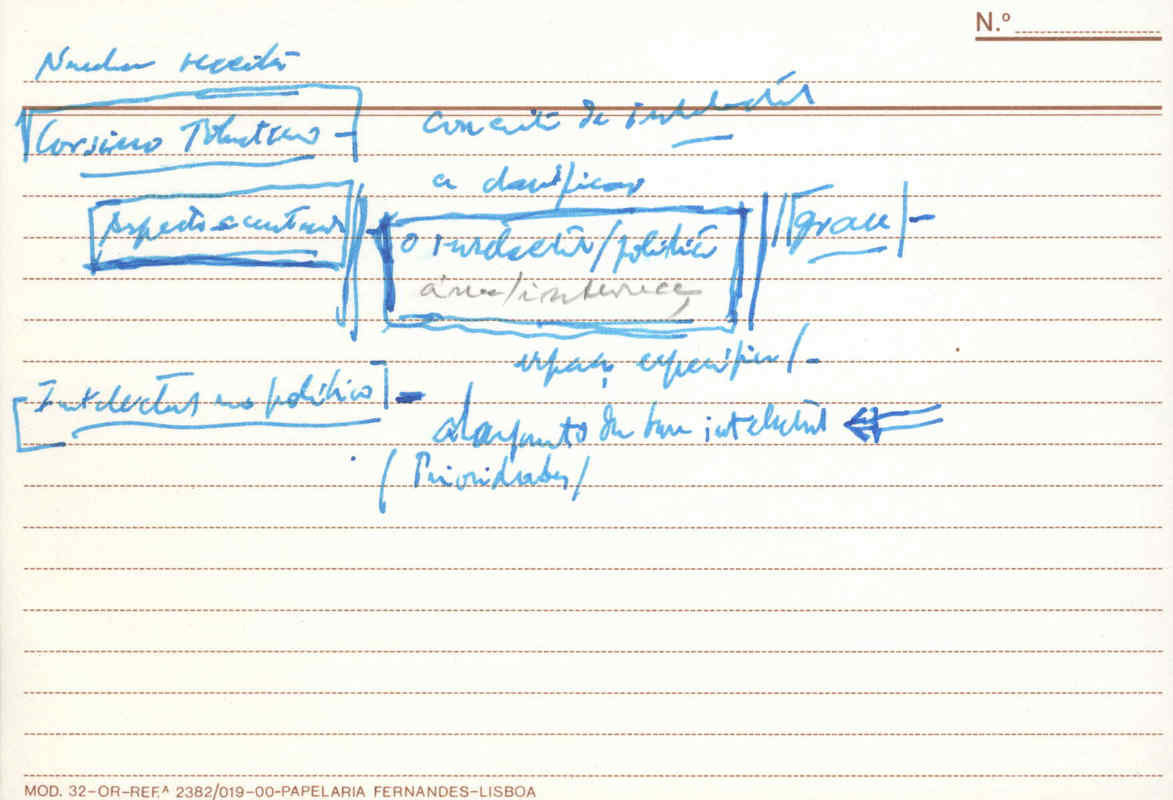 N.º
Corsino Tolentino -
conceito de intelectual
a clarificar
Aspecto a continuar
o intelectual/político
grau -
área/interince
espaço específico/-
Intelectual no político -
alargamento da base intelectual
(Prioridades/
MOD. 32-OR-REF.ᴬ 2382/019-00-PAPELARIA FERNANDES-LISBOA